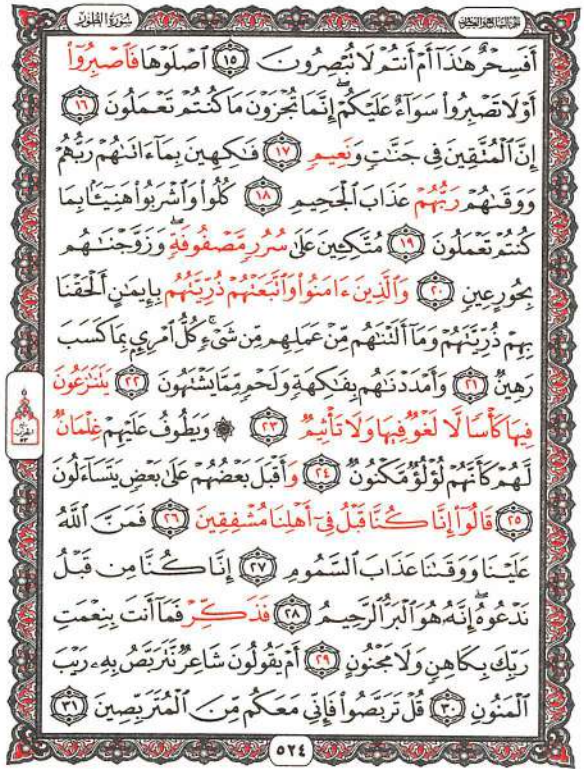 سُورَةُ الطُّورِ الجزء السابع والعشرون
أَفَسِحْرٌ هَٰذَآ أَمْ أَنتُمْ لَا تُبْصِرُونَ ١٥ ٱصْلَوْهَا فَٱصْبِرُوٓا۟
أَوْ لَا تَصْبِرُوا۟ سَوَآءٌ عَلَيْكُمْ ۖ إِنَّمَا تُجْزَوْنَ مَا كُنتُمْ تَعْمَلُونَ ١٦
إِنَّ ٱلْمُتَّقِينَ فِى جَنَّٰتٍ وَنَعِيمٍ ١٧ فَٰكِهِينَ بِمَآ ءَاتَىٰهُمْ رَبُّهُمْ
وَوَقَىٰهُمْ رَبُّهُمْ عَذَابَ ٱلْجَحِيمِ ١٨ كُلُوا۟ وَٱشْرَبُوا۟ هَنِيٓـًٔۢا بِمَا
كُنتُمْ تَعْمَلُونَ ١٩ مُتَّكِـِٔينَ عَلَىٰ سُرُرٍ مَّصْفُوفَةٍ ۖ وَزَوَّجْنَٰهُم
بِحُورٍ عِينٍ ٢٠ وَٱلَّذِينَ ءَامَنُوا۟ وَٱتَّبَعَتْهُمْ ذُرِّيَّتُهُم بِإِيمَٰنٍ أَلْحَقْنَا
بِهِمْ ذُرِّيَّتَهُمْ وَمَآ أَلَتْنَٰهُم مِّنْ عَمَلِهِم مِّن شَىْءٍ ۚ كُلُّ ٱمْرِئٍۭ بِمَا كَسَبَ
رَهِينٌ ٢١ وَأَمْدَدْنَٰهُم بِفَٰكِهَةٍ وَلَحْمٍ مِّمَّا يَشْتَهُونَ ٢٢ يَتَنَٰزَعُونَ
فِيهَا كَأْسًا لَّا لَغْوٌ فِيهَا وَلَا تَأْثِيمٌ ٢٣ ۞ وَيَطُوفُ عَلَيْهِمْ غِلْمَانٌ
لَّهُمْ كَأَنَّهُمْ لُؤْلُؤٌ مَّكْنُونٌ ٢٤ وَأَقْبَلَ بَعْضُهُمْ عَلَىٰ بَعْضٍ يَتَسَآءَلُونَ
٢٥ قَالُوٓا۟ إِنَّا كُنَّا قَبْلُ فِىٓ أَهْلِنَا مُشْفِقِينَ ٢٦ فَمَنَّ ٱللَّهُ
عَلَيْنَا وَوَقَىٰنَا عَذَابَ ٱلسَّمُومِ ٢٧ إِنَّا كُنَّا مِن قَبْلُ
نَدْعُوهُ ۖ إِنَّهُۥ هُوَ ٱلْبَرُّ ٱلرَّحِيمُ ٢٨ فَذَكِّرْ فَمَآ أَنتَ بِنِعْمَتِ
رَبِّكَ بِكَاهِنٍ وَلَا مَجْنُونٍ ٢٩ أَمْ يَقُولُونَ شَاعِرٌ نَّتَرَبَّصُ بِهِۦ رَيْبَ
ٱلْمَنُونِ ٣٠ قُلْ تَرَبَّصُوا۟ فَإِنِّى مَعَكُم مِّنَ ٱلْمُتَرَبِّصِينَ ٣١
٥٢٤